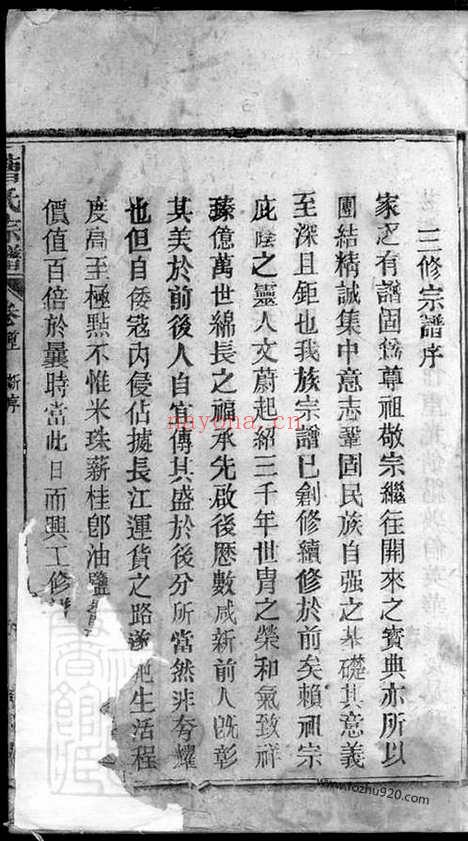 三修宗譜序
家之有譜固爲尊祖敬宗繼往開來之寶典亦所以
團結精誠集中意志鞏固民族自强之基礎其意義
至深且鉅也我族宗譜已創修續修於前矣賴祖宗
庇蔭之靈人文蔚起紹三千年世胄之榮和氣致祥
臻億萬世綿長之福承先啟後歷數咸新前人旣彰
其美於前後人自宜傳其盛於後分所當然非夸耀
也但自倭寇內侵佔據長江運貨之路遂 生活程
度高至極點不惟米珠薪桂卽油鹽
價值百倍於曩時當此日而興工修
氏宗譜
新序
nayona.cn
www.fozhu920.com